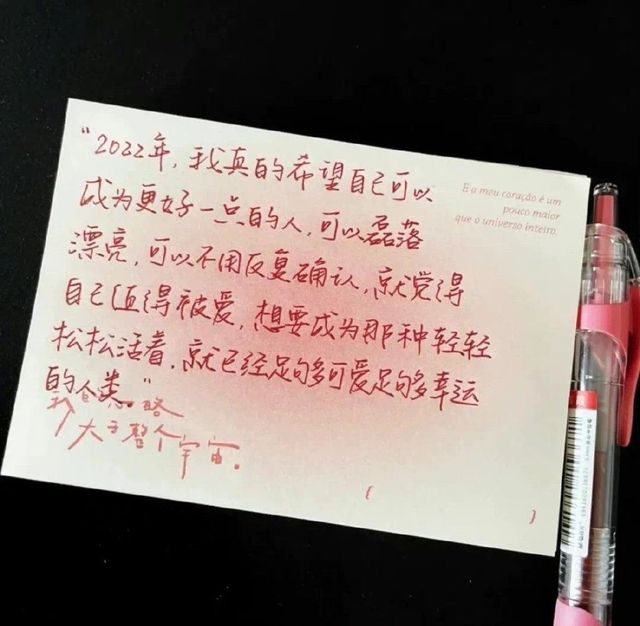 “2022年，我真的希望自己可以
成为更好一点的人，可以磊落
漂亮，可以不用反复确认，就觉得
自己值得被爱，想要成为那种轻轻
松松活着，就已经足够可爱足够多幸运
的人类”
大于整个宇宙。
E o meu coração é um
pouco maior
que o universo inteiro.